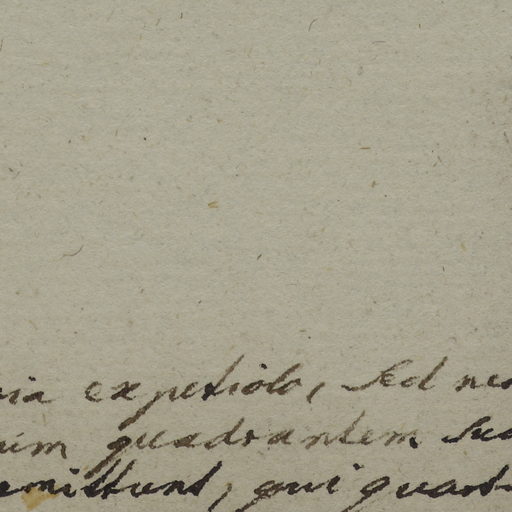 ria ex petiolo, sed ner
uim quadrantem suo
emittunt, qui quart